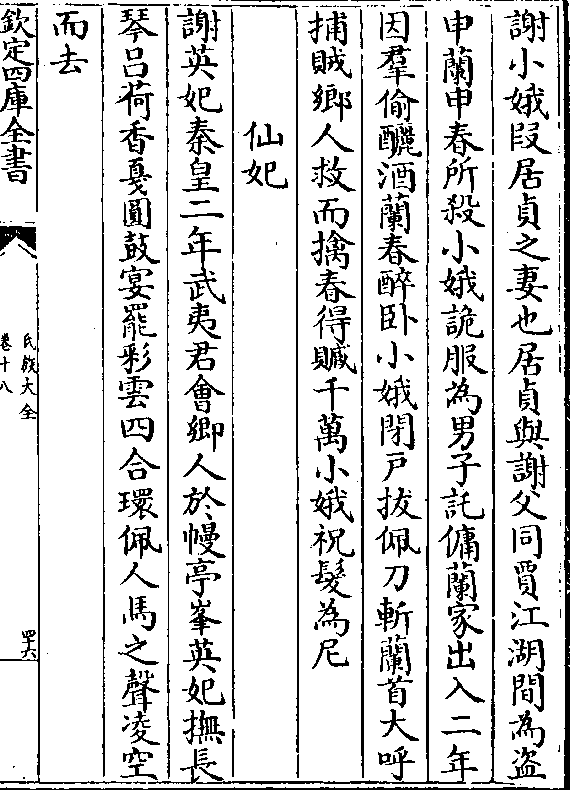 謝小娥段居貞之妻也居貞與謝父同賈江湖間為盜
申蘭申春所殺小娥詭服為男子託傭蘭家出入二年
因羣偷釃酒蘭春醉卧小娥閉戶拔佩刀斬蘭首大呼
捕賊鄉人救而擒春得贓千萬小娥祝髮為尼
仙妃
謝英妃秦皇二年武夷君會鄉人於幔亭峯英妃撫長
琴呂荷香戛圓鼓宴罷彩雲四合環佩人馬之聲凌空
而去
欽定四庫全書
氏族大全
卷十八
四六